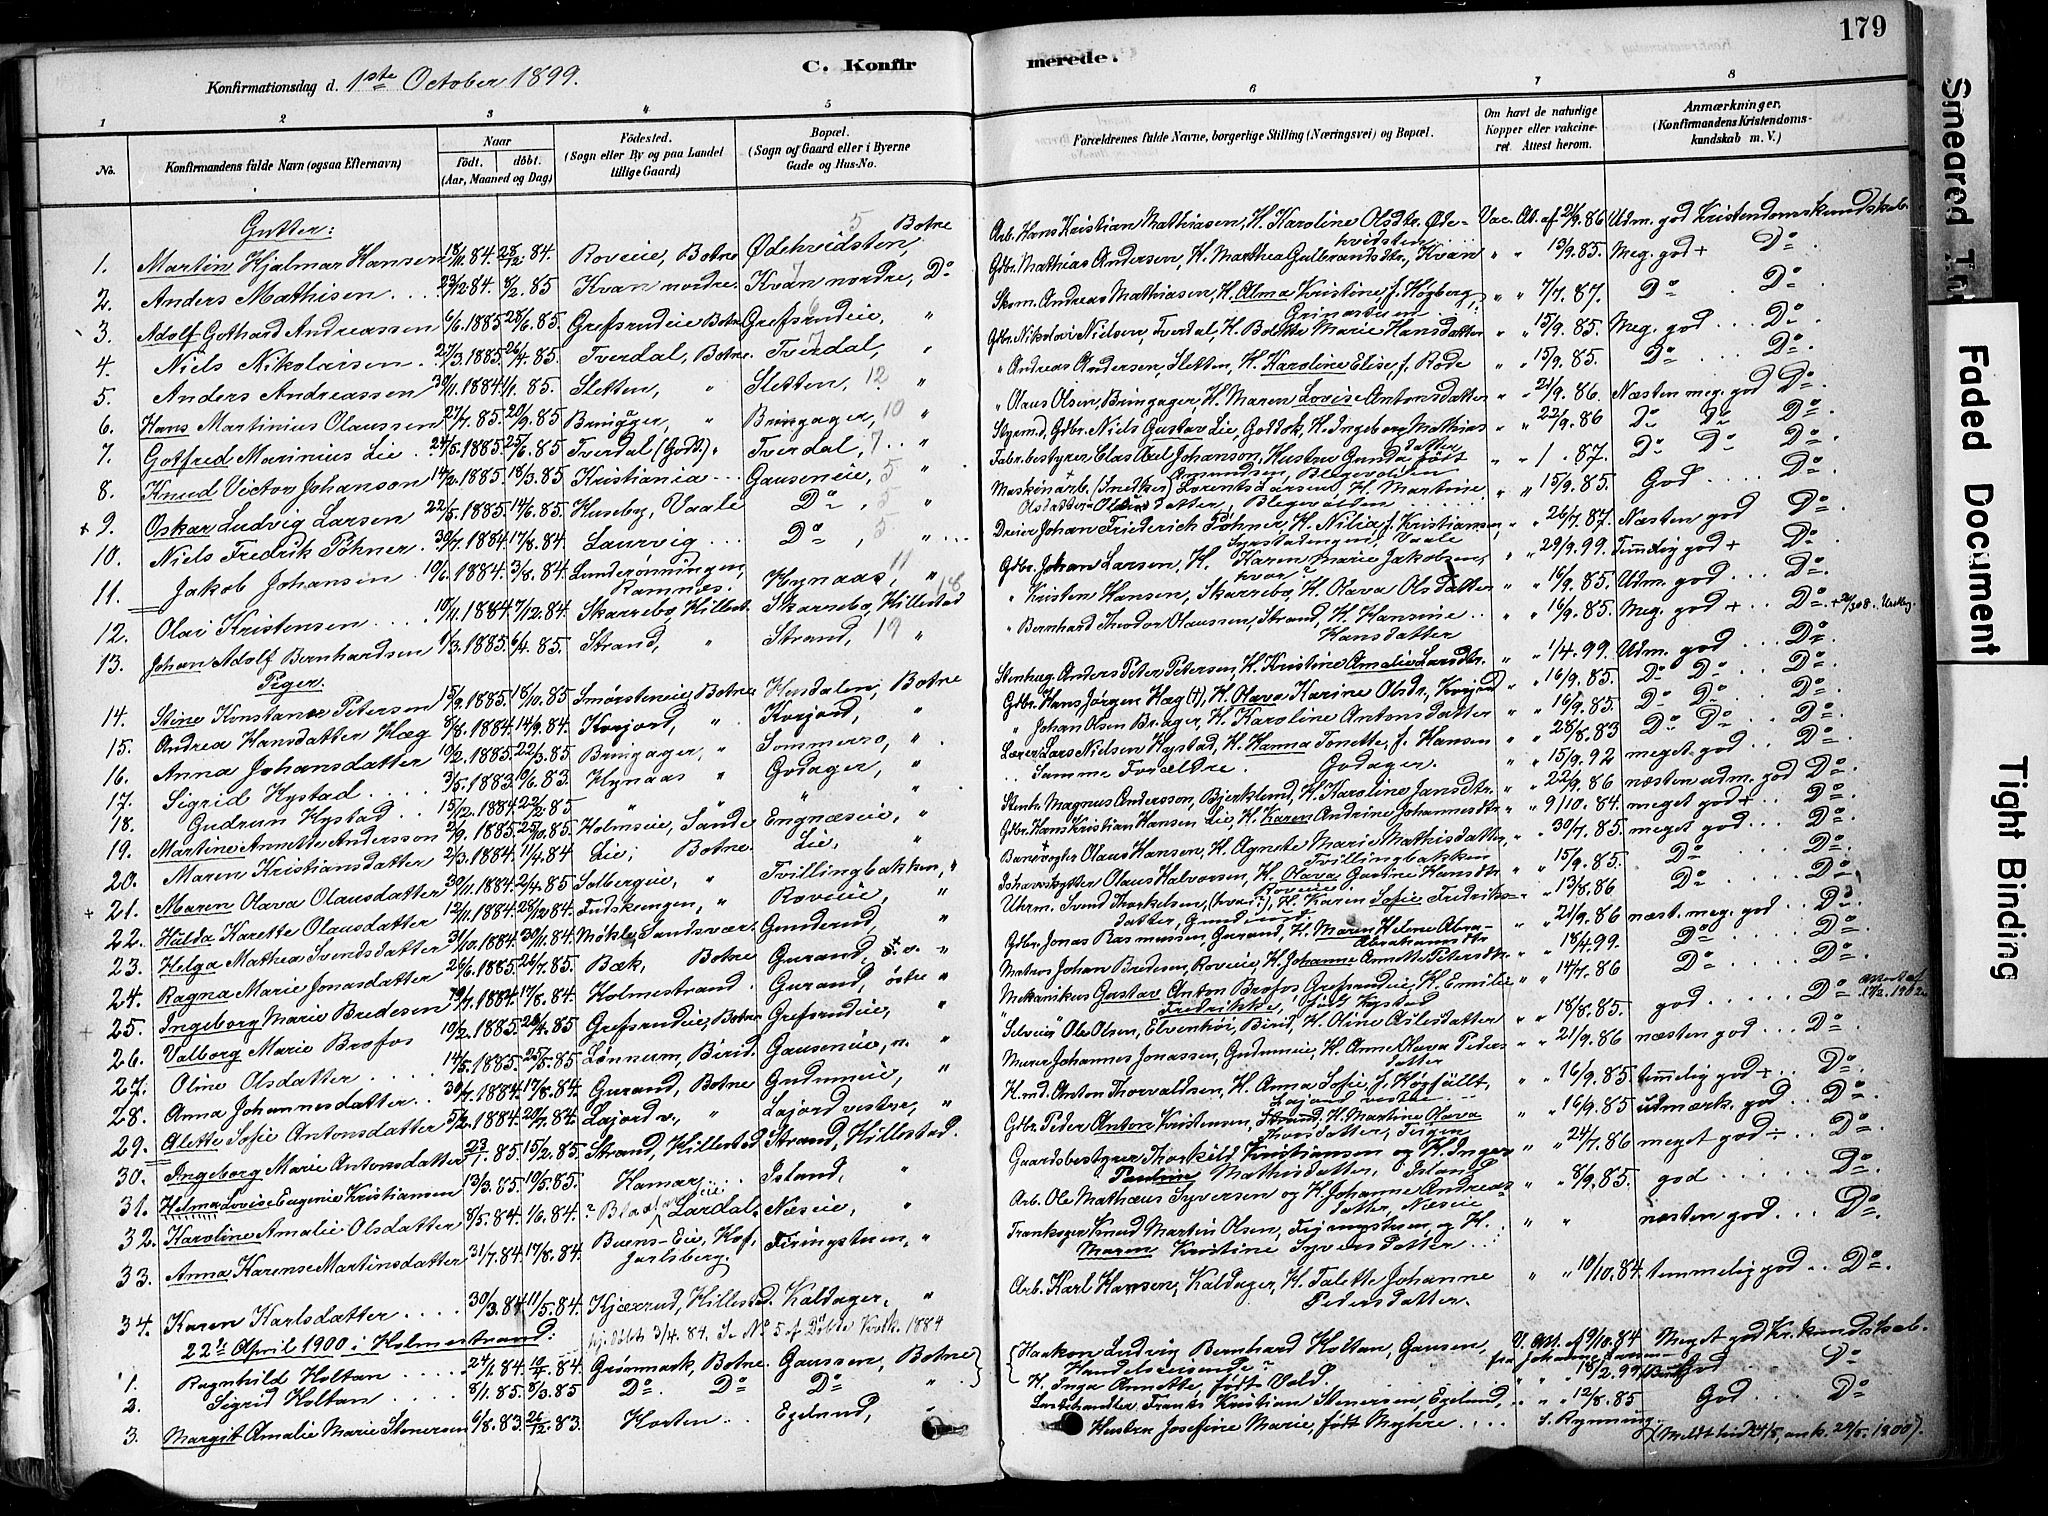 179
C. Konfirmerede.
Konfirmationsdag d. 1ste October 1899.
1 2 3 4 5 6 7 8
No. Konfirmandens fulde Navn (ogsaa Efternavn) Naar født. døbt. (Aar, Maaned og Dag) Fødested. (Sogn eller By og paa Landet tillige Gaard) Bopæl. (Sogn og Gaard eller i Byerne Gade og Hus-No. Forældrenes fulde Navne, borgerlige Stilling (Næringsvei) og Bopæl. Om havt de naturlige Kopper eller vakcineret. Attest herom. Anmærkninger. (Konfirmandens Kristendomskundskab m. V.)
Gutter:
1. Martin Hjalmar Hansen 18/11 84. 28/12 84. Roveie, Botne Ødekvidsten, 5 Botne Arb. Hans Kristian Mathiasen, H. Karoline Olsdtr. Ødekvidsten Vac. At. af 21/9. 86 Udm. god Kristendomskundskab.
2. Anders Mathisen 8/2. 85 Kvan nordre. Kvan nordre, 7 Do Gbr. Mathias Andersen, H. Marthea Gulbrandsdtr., Kvan " " 13/9. 85. Meg. god + Do
3. Adolf Gothard Andreassen 6/6. 1885 28/6. 85. Grefsrudeie Botne Grefsrudeie, " Skom. Andreas Mathiasen, H. Alma Kristine f. Høgberg, " " 7/7. 87. Do Do
4. Niels Nikolaisen 27/3. 1885. 26/4. 85. Tverdal, Botne. Tverdal, 7 " Gbr. Nikolai Nielsen, Tverdal, H. Bolette Marie Hansdatter " " 15/9. 85. Meg. god Do
5. Anders Andreassen 30/11. 1884. 1/1. 85. Sletten, " Sletten, 12 " " Andreas Andersen, Sletten, H. Karoline Elise, f. Rode " " 15/9. 85. Do Do
6. Hans Martinius Olaussen 27/7. 85. 20/9. 85 Bringager, " Bringager, 10 " " Olaus Olsen, Bringager, H. Maren Lovise Antonsdatter " " 21/9. 86. Næsten meg. god Do
7. Gotfred Marinius Lie 24/5. 1885. 25/6. 85 Tverdal (Godd.) " Tverdal, 7 " Styrmd., Gbr. Niels Gustav Lie, Goddok, H. Ingeborg Mathiasdatter " " 22/9. 86 Do Do
8. Knud Victor Johanson 14/2. 1885. 18/3. 85 Kristiania Gauseneie, 5 " Fabr. bestyrer Clas Axel Johanson, Hustru Gunda født Amundsen " " 1 . 87. Do Do
9. Oskar Ludvig Larsen 22/5. 1885. 14/6. 85. Huseby, Vaale Do, 5 " Maskinarb. (Snedker) Lorents Larsen, H. Martine Olsdatter " " 15/9. 85. God Do
10. Niels Fredrik Pöhner 30/7. 1884. 17/8. 84. Laurvig Do, 5 " Dreier Johan Friederich Pöhner, H. Nilia f. Kristiansen, " " 26/7. 87. Næsten god Do
11. Jakob Johansen 10/6. 1884. 3/8. 84. Lunderønningen, Ramnes. Hynaas, 11 " Gbr. Johan Larsen, H. Karen Marie Jakobsen, " " 29/9. 99. Temmelig god + Do
12. Olav Kristensen 10/11. 1884. 7/12. 84. Skarrebo, Hillest. Skarrebo, Hillestad 18 " Kristen Hansen, Skarrebo, H. Olava Olsdatter " " 16/9. 85. Udm. god Do
13. Johan Adolf Bernhardsen 1/3. 1885. 6/4. 85. Strand, " Strand, 19 " " Bernhard Theodor Olaussen, Strand, H. Hansine Hansdatter " " 16/9. 85. Meg. god + Do
Piger.
14. Stine Konstance Petersen 15/9. 1885. 18/10. 85 Smørsteneie, Botne Husdalen, Botne Stenhug. Anders Peter Petersen, H. Kristine Amalie Larsdtr. " " 1/4. 99. Udm. god Do
15. Andrea Hansdatter Hæg 8/8. 1884. 14/9. 84. Korjord, " Korjord, " Gbr. Hans Jørgen Hæg (†), H. Olava Karine Olsdtr., Korjord " " 16/9. 85. Do Do Do
16. Anna Johansdatter 10/2. 1885. 22/3. 85 Bringager, " Sommerro, " " Johan Olsen Br.ager, H. Karoline Antonsdatter " " 16/9. 85. Do Do Do
17. Sigrid Hystad 3/5. 1883. 10/6. 83. Hynaas " Godager, " Lærer Lars Nielsen Hystad, H. Hanna Tonette, f. Hansen " " 28/8. 83 Do Do Do
18. Gudrun Hystad 15/12. 1884. 22/2. 85 " " " Samme Forældre. Godager. " " 15/9. 92 meget god Do
19. Martine Annette Andersson 2/9. 1885. 25/10. 85. Holmseie, Sande Engnæseie, " Stenh. Magnus Andersson, Bjerklund, H. Karoline Jansdtr. " " 22/9. 86 næsten udm. god Do
20. Maren Kristiansdatter 2/3. 1884. 11/4. 84 Lie, Botne Lie, " Gbr. Hans Kristian Hansen Lie, H. Karen Andrine Johannesdtr " " 9/10. 84. meget god + Do
21. Maren Olava Olausdatter 30/11. 1884. 2/4. 85 Solbergeie, " Tvillingbakken, " Banevogter Olaus Hansen, H. Agnete Marie Mathisdatter, Tvillingbakken " " 30/7. 85. meget god Do
22. Hilda Karette Olausdatter 12/11. 1884. 28/12. 84. Fudskengen, " Roveie, " Ishavsskytter Olaus Halvorsen, H. Olava Gurine Hansdtr Roveie " " 15/9. 85. Do Do
23. Helga Mathea Svendsdatter 31/10. 1884. 30/11. 84. Møkle, Sandsvær. Gunderud, " Uhrm. Svend Thorkelsen, (hvor?), H. Karen Sofie Fredriksdatter, Gunderud. " " 13/8. 86 Do Do
24. Ragna Marie Jonasdatter 20/6. 1885. 26/7. 85. Bæk, Botne Gurand, " Gbr. Jonas Rasmussen, Gurand, H. Maren Helene Abrahamsdtr " " 21/9. 86 næst. meg. god Do
25. Ingeborg Marie Bredesen 17/8. 84. Holmestrand. Gurand, østre " Matros Johan Bredesen, Roveie, H. Johanne Annette Petersdtr " " 18/4. 99. Do Do
26. Valborg Marie Brofos 10/2. 1885. 26/4. 85 Grefsrudeie, Botne Grefsrudeie, " Mekanikus Gustav Anton Brofos Grefsrudeie, H. Emilie Fredrikke, født Hystad " " 14/7. 86 Do Do
27. Oline Olsdatter 14/5. 1885. 25/5. 85 Lønnum, Birid. Gauseneie, n. " Selveier Ole Olsen, Elvenhøi, Birid, H. Oline Aslesdatter " " 18/8. 85. god Do
28. Anna Johannesdatter 30/7. 1884. 17/8. 84. Gurand, Botne Gudumeie, " Murer Johannes Jonassen, Gudumeie, H. Anne Olava Pedersdatter " " 21/9. 86 næsten god Do
29. Alette Sofie Antonsdatter 5/2. 1884. 20/7. 84. Lajord v., " Lajord vestre, " H.md. Anton Thorvaldsen, H. Anna Sofie, f. Høgfällt, Lajord vestre " " 16/9. 85. temmelig god + Do
30. Ingeborg Marie Antonsdatter 23/1. 85. 15/2. 85. Strand, Hillestad Strand, Hillestad. Gbr. Peder Anton Kristensen, Strand, H. Martine Olava Thorsdatter, Teigen " " 16/9. 85 udmærk. god Do
31. Helma Lovise Eugenie Kristiansen 13/3. 85. 10/5. 85. Hamar Island, " Gaardsbestyrer Thorkild Kristiansen og H. Inger Pauline Mathisdatter, Island " " 24/7. 86 meget god ÷ Do
32. Karoline Amalie Olsdatter 8/5. 84. 1/6. 84. Lardal, Næseie, " Arb. Ole Mathæus Syversen og H. Johanne Andreasdatter, Næseie " " 8/9. 85. god Do
33. Anna Karense Martinsdatter 31/7. 84. 17/8. 84. Buens-Eie, Hof, Jarlsberg Firingsteen, " Knud Martin Olsen, og H. Maren Kristine Syversdatter " " næsten god Do
34. Karen Karlsdatter 30/3. 84. 11/5. 84. Kjærrud, Hillestad. Kaldager, " Arb. Karl Hansen, Kaldager, H. Talette Johanne Pedersdatter. " " 10/10. 84. temmelig god Do
22de April 1900 i Holmestrand: hjdøbt 3/4. 84. Se No 5 af Døbte Kvk. 1884
1. Ragnhild Holtan 24/1. 84. 84. Grønmark, Botne. Gaussen, Botne Haakon Ludvig Bernhard Holtan, Gausen, Handelsreisende V. Att. af 9/10. 84 Meget god Kr. kundskab.
2. Sigrid Holtan 8/1. 85. 8/3. 85 Do. Do Do " H. Inga Annette, født Vold. 18/2. 99 God Do
3. Margit Amalie Marie Stenersen 6/8. 83. 26/12. 83. Horten Egelund, " Frants Kristian Stenersen, Egelund, Hustru Josefine Marie, født Myhre " " 12/8. 85 God Do
Smeared
Faded Document
Tight Binding